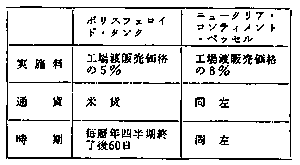 ポリスフェロイド・タンク
ニュークリア・コンティメント・ベッセル
実施料
工場渡販売価格の5%
工場渡販売価格の8%
通貨
米貨
同左
時期
毎暦年四半期終了後60日
同左